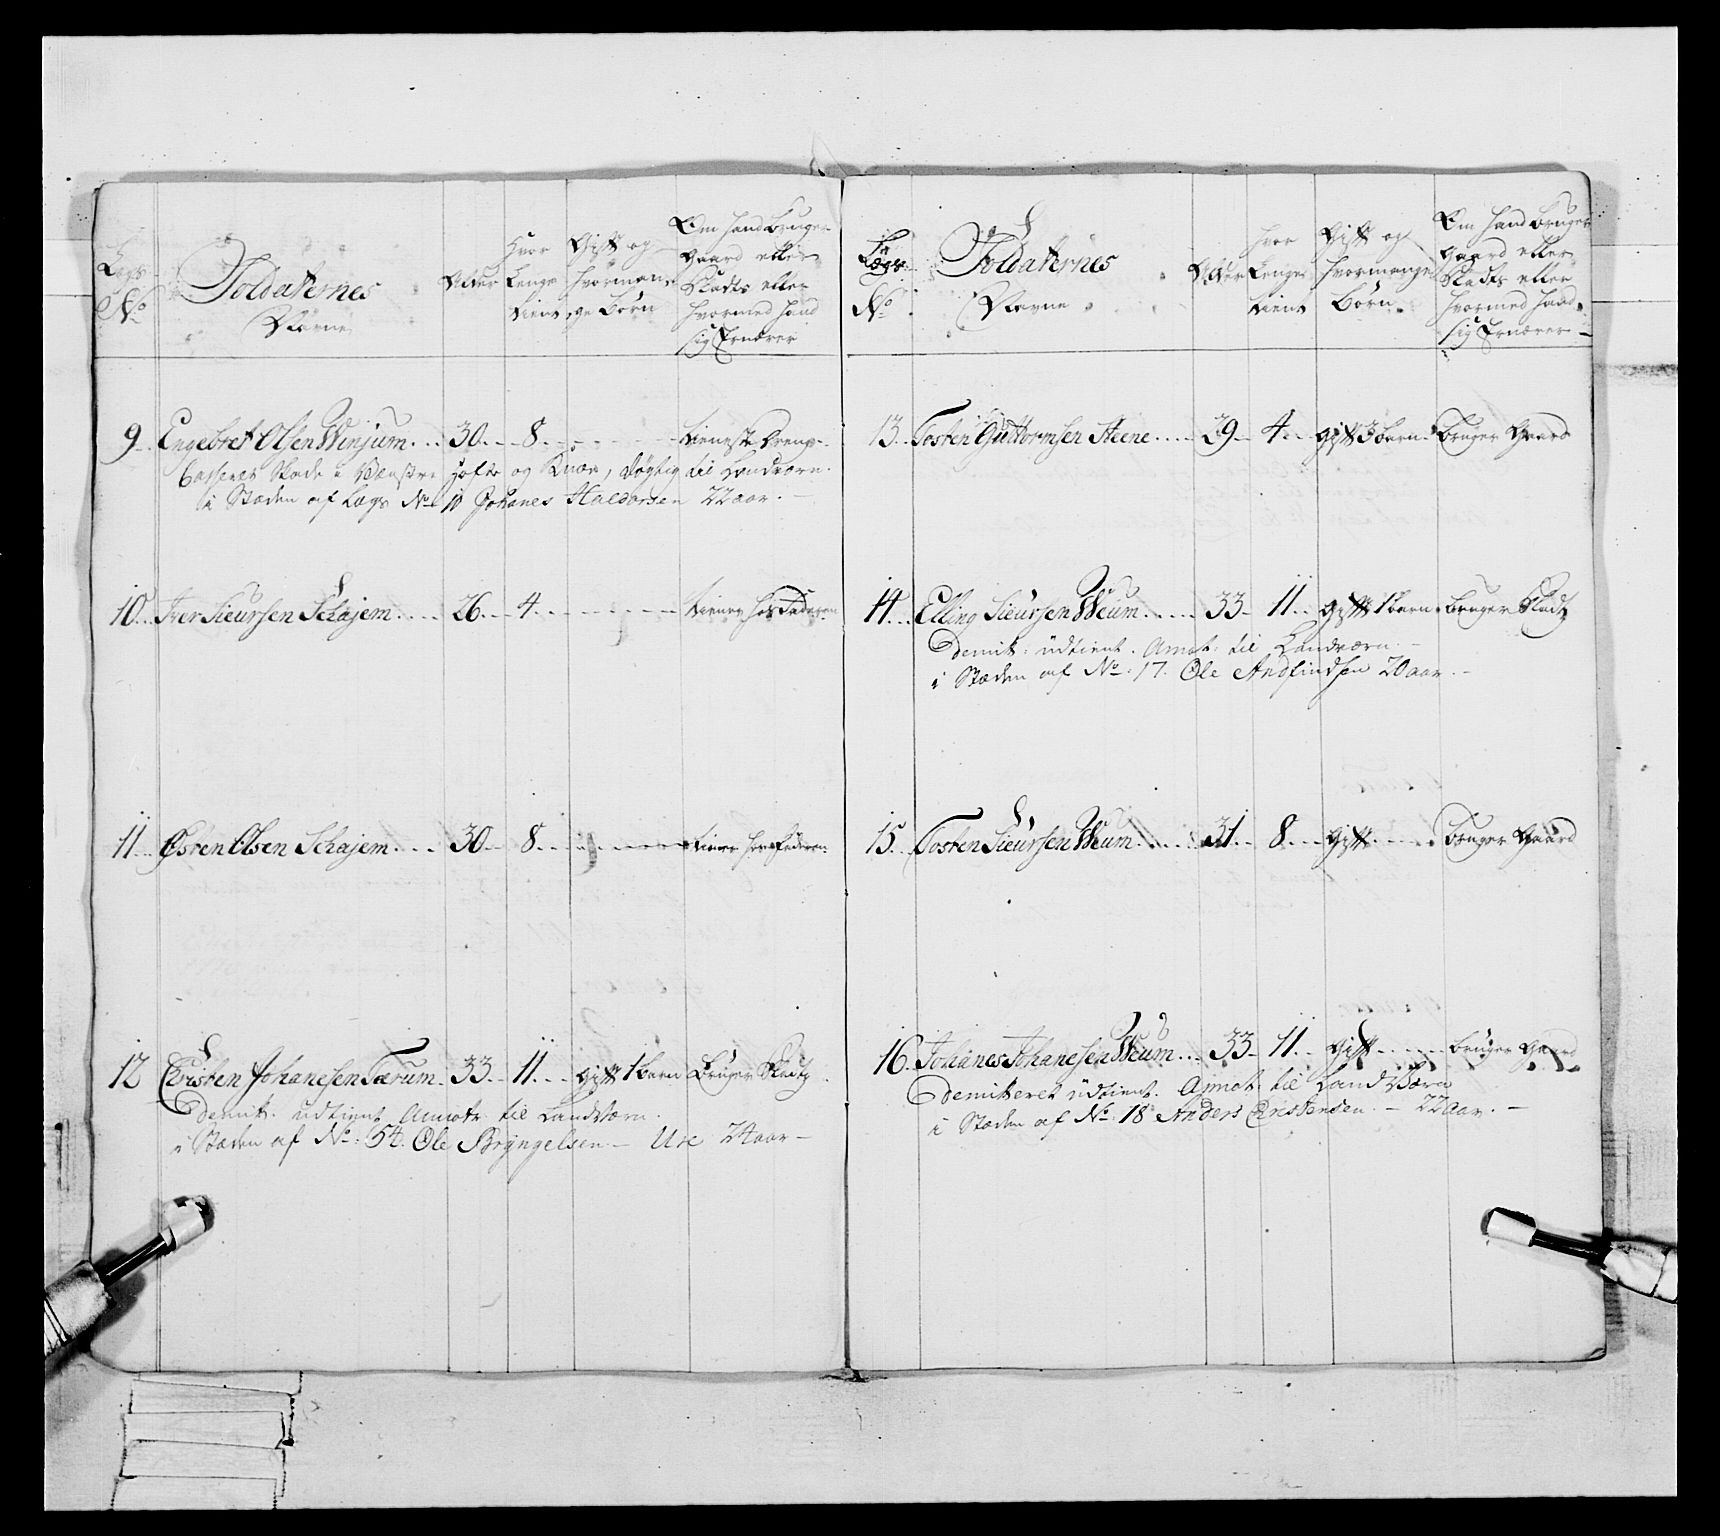 Legs
No
Soldaternes
Navne
Alder
Hvor
Lenge
tient
Gift og
hvorman-
ge Børn
Om hand bruger
Gaard eller
Pladts eller
hvormed hand
sig Ernærer
9 Engebret Olsen Winjum 30 8 tieneste dreng
Casseret Skade i Venstre Hofte og Knæe, døgtig til Landværn.
i Stæden af Legs No 10 Johanes Haldorsen 22 aar.
10 Iver Siursen Schajem 26 4 tiener hos Faderen
11 Østen Olsen Schajem 30 8 tiener hos Faderen
12 Christen Johanesen Tærum 33 11 gift 1 barn Bruger Pladtz
demit: udtient Annotr til Landværn.
i Stæden af No: 54. Ole Bryngelsen - Ure 24 aar -
Legs
No
Soldaternes
Navne
Alder
hvor
Lenge
tient
Gift og
hvormange
Børn
Om hand bruger
Gaard eller
Pladts eller
hvormed hand
sig Ernærer
13 Tosten Guttormsen Steene 29 4 gift 3 barn Bruger Gaard
14 Elling Siursen Weum 33 11 gift 1 barn bruger Pladtz
demit: udtient. Annot: til Landværn.
i Stæden af No: 17. Ole Andfindsen 20 aar. -
15 Tosten Siursen Weum 31 8 gift bruger Gaard
16 Johanes Johanesen Weum 33 11 gift bruger Gaard
demitteret udtient. Annot: til Landværn
i Stæden af No: 18 Anders Cristensen. - 22 aar. -